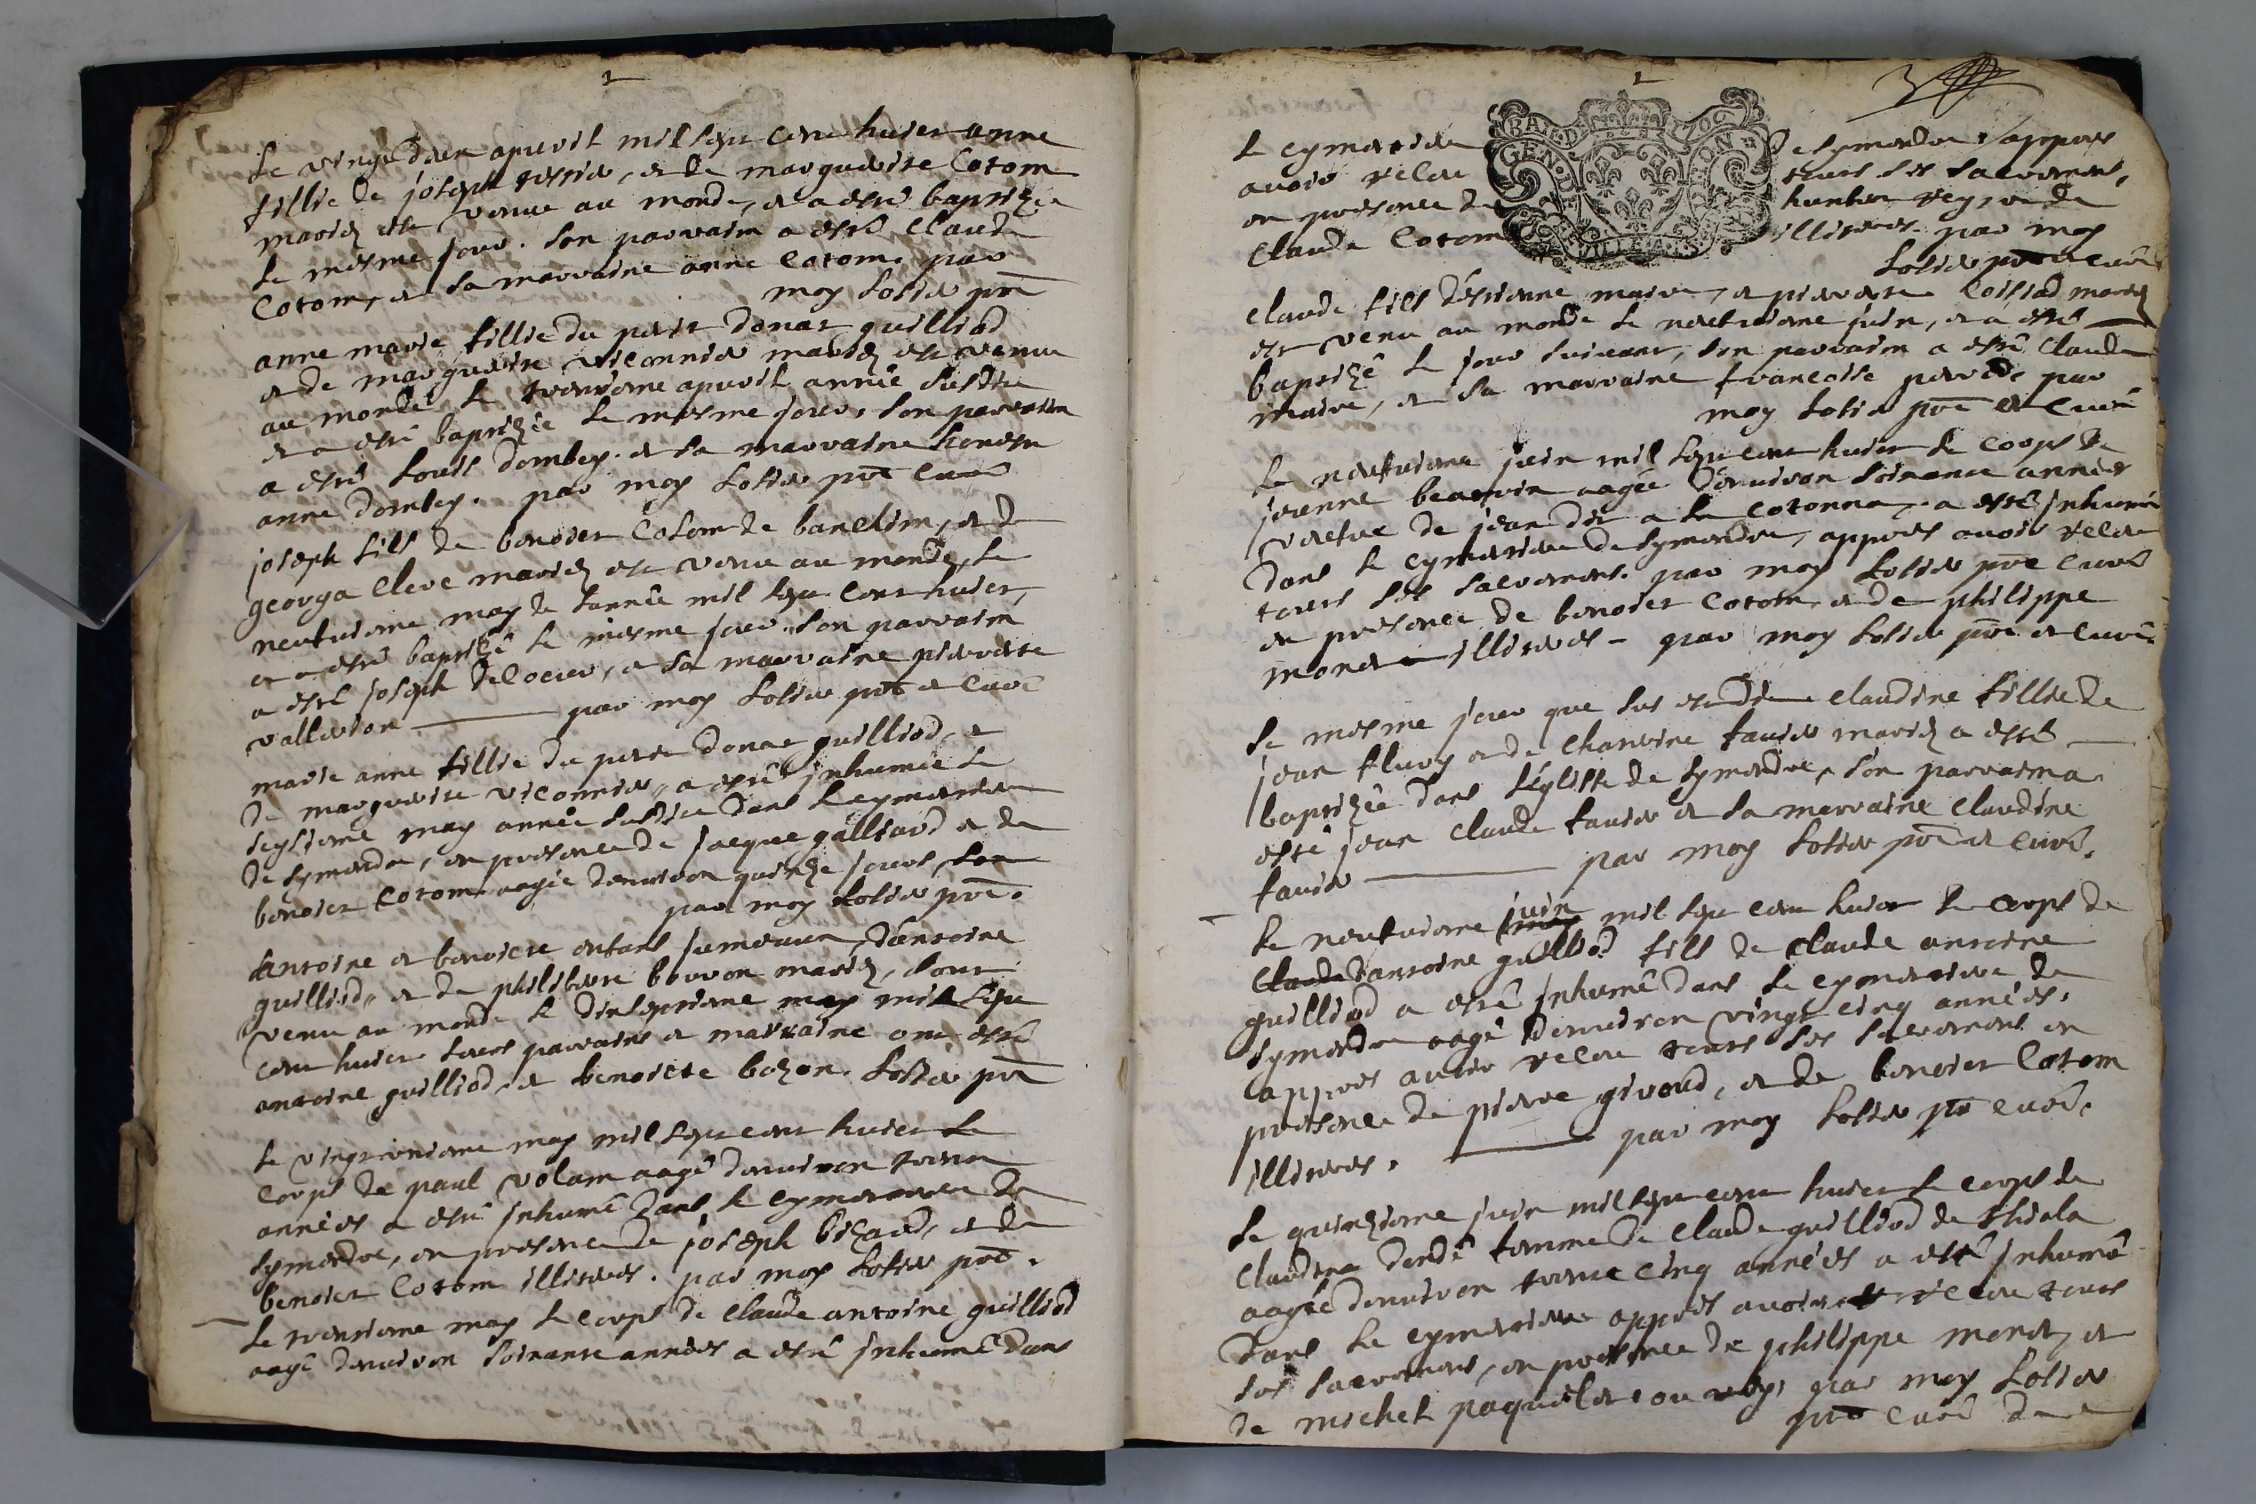 1
Le vingt deux apvril mil sept cent huict anne
fillie de joseph tissier, et de marguerite Cotom
mariez est venue au monde, et a esté baptizée
le mesme jour. son parrain a esté Claude
Cotom, et sa marraine anne Cotom. par
moy Losier pre
anne marie fillie du petit donat guilliod
et de marguerite viconnier mariez est venue
au monde le trentieme apvril année susdite
et a esté baptizée le mesme jour, son parrain
a esté Louis dombey. et sa marraine honeste
anne dombey. par moy Losier pre curé
joseph fils de benoict Cotom de banclim, et de
georga Clere mariez est venu au monde, le
neufvieme may de l'année mil sept cent huict,
et a esté baptizé le mesme jour. son parrain
a esté joseph delocier, et sa marraine pierrete
valleton par moy Losier pre et curé
marie anne fillie du petit donat guilliod, et
de marguerite viconnier, a esté inhumée le
seyzieme may année susdite dans le cymetiere
de symandre, en presence de jacque galliard et de
benoict Cotom aagée denviron quinze jours, son
par moy Losier pre.
Antoine et benoicte enfans jumeaux, d'antoine
guilliod, et de philiberte bouvon mariez, sont
venu au monde le dixseptieme may mil sept
cent huict leurs parrains et marraine ont esté
antoine guilliod, et benoicte bozon. Losier pre
Le vingt unieme may mil sept cent huict le
corps de paul volam aagé denviron trente
années a esté inhumé dans le cymetiere de
symandre, en presence de joseph bizard, et de
benoict Cotom illiteres. par moy Losier pre.
Le trentieme may le corps de Claude antoine guilliod
aagé denviron soixante années a esté inhumé dans
1
BA.DE 1706
GEN.D ION
le cymetiere de symandre, appres
avoir receu touts ses sacremens,
en presence de humber reyre et de
Claude Cotom illiteres. par moy
Losier pre curé
Claude fils d'estienne maire, et pierrete Loisiad mariez
est venu au monde le neufvieme juin, et a esté
baptizé le jour suivant, son parrain a esté Claude
maire, et sa marraine francoise perrod, par
moy Losier pre et curé
Le neufvieme juin mil sept cent huict le corps de
jeanne beatrix aagée d'environ soixante années
vaefve de jean dit a la Cotonna, a esté inhumée
dans le cymetiere de symandre, appres avoir receu
touts ses sacremens. par moy Losier pre curé
en presence de benoict Cotom, et de philippe
monet illiteres - par moy Losier pre et curé.
Le mesme jour que sus est dit Claudine fillie de
jean fluvy et de Charvine favier mariez a esté
baptizée dans l'eglisse de symandre, son parrain a
esté jean Claude favier et sa marraine Claudine
favier par moy Losier pre et curé.
juin
Le neufvieme may mil sept cent huict le corps de
Claude d'antoine guilliod fils de Claude antoine
guilliod a esté inhumé dans le cymetiere de
symandre aagé denviron vingt cinq années,
appres avoir receu touts ses sacremens en
presence de pierre giroud, et de benoict Cotom
illiteres. par moy Losier pre curé.
Le quinzieme juin mil sept cent huict le corps de
Claudine dondé femme de Claude guilliod de thiola
aagée denviron trente cinq années a esté inhumé
dans le cymetiere appres avoir receu touts
ses sacremens, en presence de philippe monet, et
de michel paquelet par moy Losier
pre curé